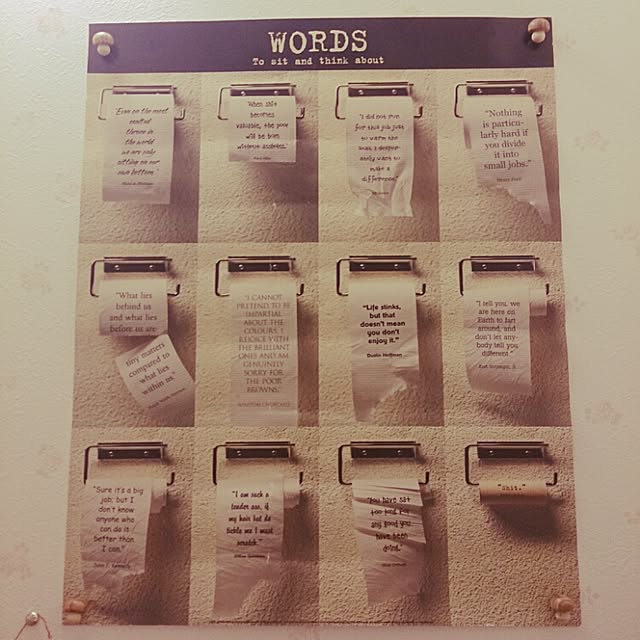 WORDS
To sit and think about
"Even on the most
exalted
throne in
the world
we are only
sitting on our
own bottom."
"When shit
becomes
valuable, the poor
will be born
without assholes."
"I did not run
for this job just
to warm the
seat. I desper-
ately want to
make a
difference."
"Nothing
is particu-
larly hard if
you divide
it into
small jobs."
Henry Ford
"What lies
behind us
and what lies
before us are
tiny matters
compared to
what lies
within us"
"I CANNOT
PRETEND TO BE
IMPARTIAL
ABOUT THE
COLOURS. I
REJOICE WITH
THE BRILLIANT
ONES AND AM
GENUINELY
SORRY FOR
THE POOR
BROWNS."
WINSTON CHURCHILL
"Life stinks,
but that
doesn't mean
you don't
enjoy it."
Dustin Hoffman
"I tell you, we
are here on
Earth to fart
around, and
don't let any-
body tell you
different."
Kurt Vonnegut, Jr.
"Sure it's a big
job; but I
don't know
anyone who
can do it
better than
I can."
John F. Kennedy
"I am such a
tender ass, if
my hair but do
tickle me I must
scratch."
William Shakespeare
"You have sat
too long for
any good you
have been
doing."
"Shit."